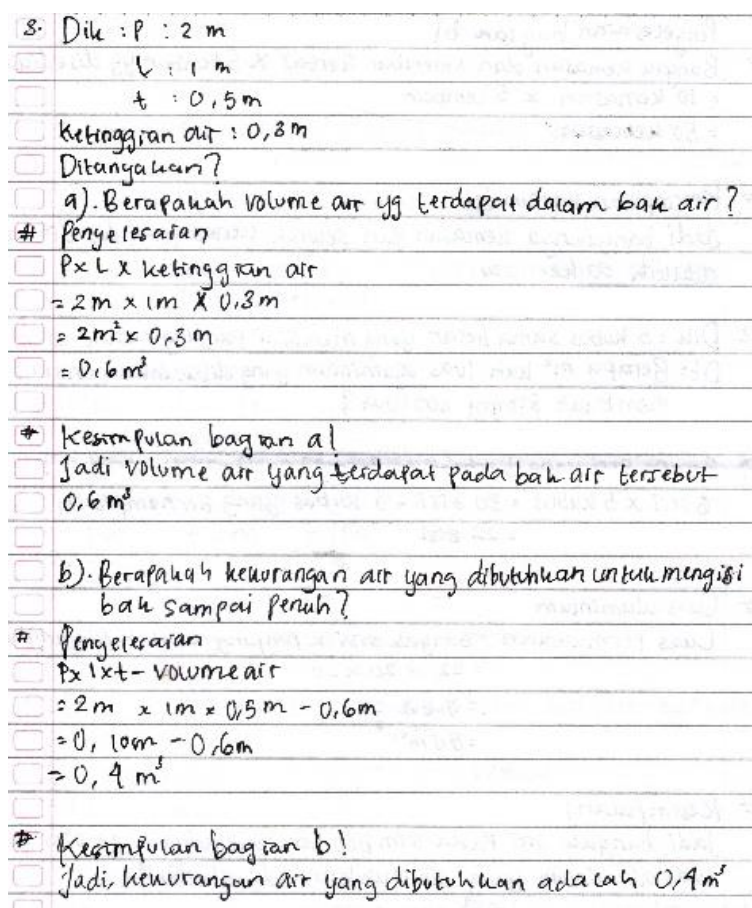 3. Dik : P : 2 m
L : 1 m
t : 0,5 m
Ketinggian air : 0,3 m
Ditanyakan?
a). Berapakah volume air yg terdapat dalam bak air ?
# Penyelesaian
P x L x ketinggian air
= 2 m x 1 m x 0,3 m
= 2 m² x 0,3 m
= 0,6 m³
# Kesimpulan bagian a!
Jadi volume air yang terdapat pada bak air tersebut
0,6 m³
b). Berapakah kekurangan air yang dibutuhkan untuk mengisi
bak sampai penuh ?
# Penyelesaian
P x l x t - volume air
= 2 m x 1 m x 0,5 m - 0,6 m
= 0, 10 m - 0,6 m
= 0,4 m³
# Kesimpulan bagian b!
Jadi, kekurangan air yang dibutuhkan adalah 0,4 m³